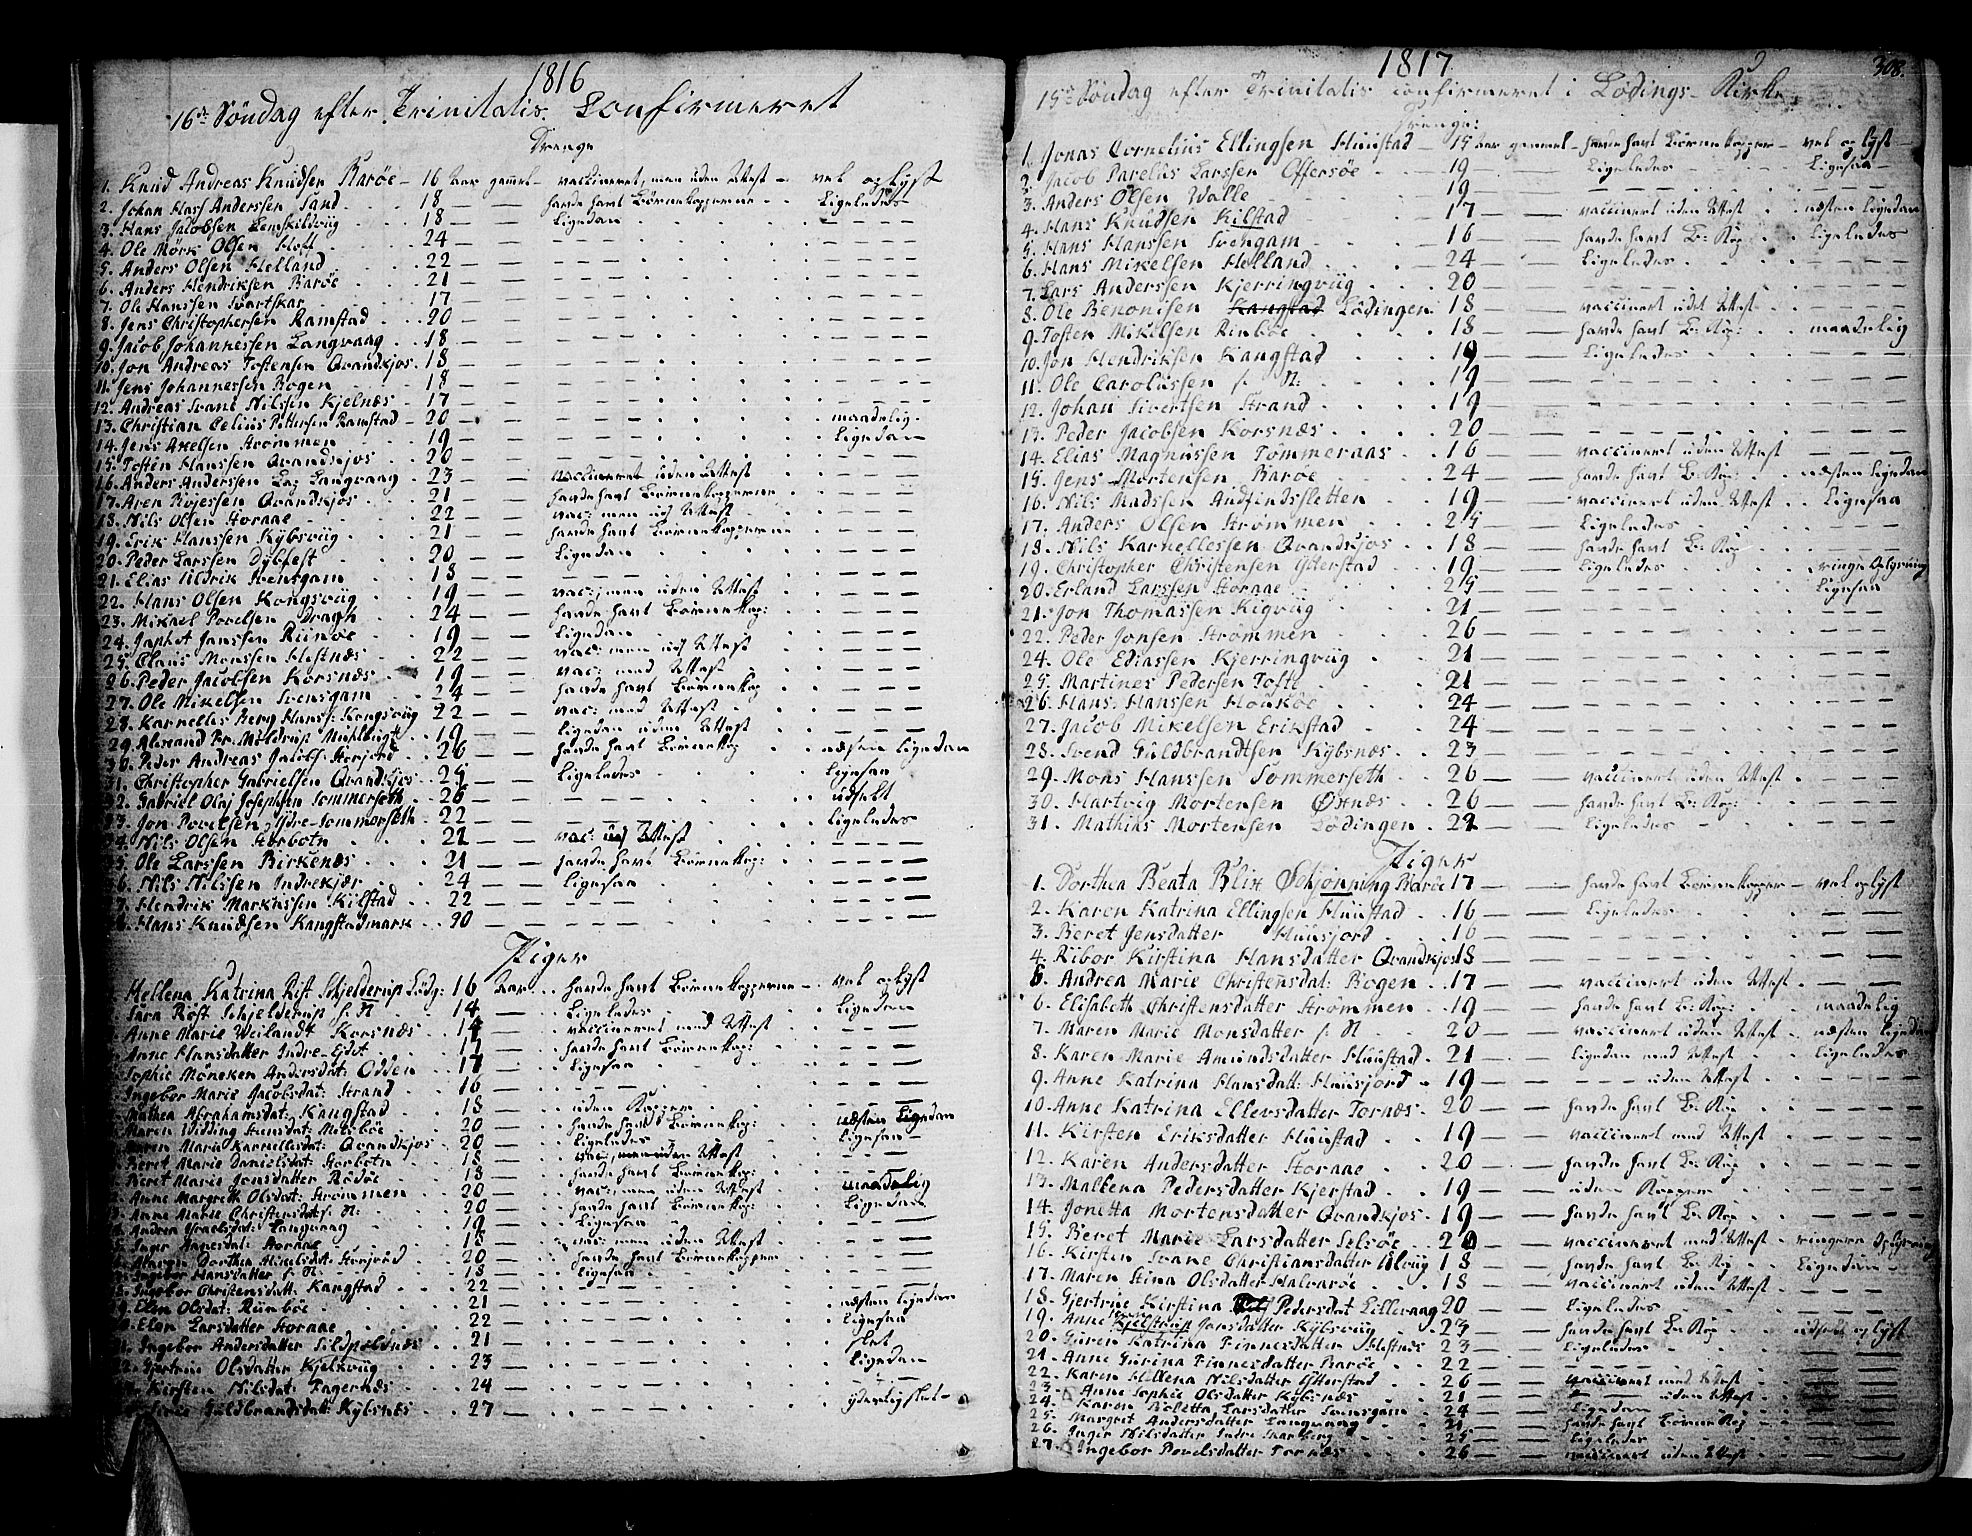 1816
16de Söndag efter Trinitatis Confirmeret
Drenge
1. Knud Andreas Knudsen Baröe - 16 Aar gammel - vaccineret, men uden Attest - vel oplyst
2. Johan Hass Anderssen Sand 18 — — havde havt Börnekopperne - Ligeledes
3. Hans Jacobsen 18 — — Ligedan
4. Ole Mörk Olsen Hoft 24 — —
5. Anders Olsen Helland 22 — —
6. Anders Hendriksen Baröe 21 — —
7. Ole Hanssen Svartskar 17 — —
8. Jens Christophersen Ramstad 20 — —
9. Jacob Johannessen Langvaag 18 — —
10. Jon Andreas Tostensen Qvandkjos 18 — —
11. Jens Johannessen Bogen 18 — —
12. Andreas Svane Nilssen Kjelnæs 17 — —
13. Christian Celius Pettersen Ramstad 20 — — maadelig
14. Jens Axelsen Strömmen 19 — — Ligedan
15. Tosten Hanssen Qvandkjos 20 — —
16. Anders Anderssen Langvaag 23 — — vaccineret uden Attest
17. Aren Qvandkjos 21 — — havde havt Börnekopperne
18. Nils Olsen Storaae 22 — — vac: men ud Attest
19. Erik Hanssen Kybsviig 21 — — havde havt Börnekopperne
20. Peder Larssen Dybfest 20 — — Ligedan
21. Elias Uldrik Svensgam 18 — —
22. Hans Olsen Kongsviig 19 — — vac: men uden Attest
23. Mikael Povelsen Dragh 24 — — havde havt Börnekop:
24. Japhet Janssen Riinöe 19 — — Ligedan
25. Claus Monssen Hestnæs 22 — — vac: men ud Attest
26. Peder Jacobsen Korsnæs 19 — — vac: med Attest
27. Ole Mikelsen Svensgam 24 — — havde havt Börnekop
28. Karnelles Berg Hanss: Kongsviig 22 — — vac: med Attest
29. Alexand Fr. Möldrup 19 — — Ligedan uden Attest
30. Peder Andreas Jacobs: Storjord 26 — — havde havt Börnekop næsten Ligedan
31. Christopher Gabrielsen Qvandkjos 25 — — Ligeledes Ligesaa
32. Gabriel Olaj Josephsen Sommerseth 26 — — udselt
33. Jon Povelsen Ytre-Sommerseth 22 — — Ligeledes
34. Nils Olsen Storbotn 21 — — vac: ud Attest
35. Ole Larssen Birkenæs 21 — — havde havt Börnekop:
36. Nils Nilssen Indrekjær 24 — — Ligesaa
37. Hendrik Markussen Kilstad 22 — —
38. Hans Knudsen Kangstadmark 20 — —
Piger
Hellena Katrina Rist Schjelderup Lödg: 16 Aar havde havt Börnekopperne - vel oplyst
Sara Rost Schjelderup s. St 14 — Ligeledes Ligedan
Anne Marie Weilandt Korsnæs 14 — vaccineret med Attest
Anne Hansdatter Indre-Ejdet 17 — havde havt Börnekop:
Sophie Möneken Andersdat: Odden 17 — Ligesaa
Ingebor Marie Jacobsdat: Strand 16 —
Mathea Abrahamsdat: Kangstad 18 — uden Kopper
Maren Widding 20 — havde havt Börnekop: næsten Ligedan
Maren Maria Karnellesdat: Qvandkjos 20 — Ligeledes Ligesaa
Beret Marie Danielsdat: Storbotn 18 — vac: men uden Attest
Beret Marie Jonsdatter Rödöe 18 — havde havt Börnekop:
Anne Margrete Olsdat: Strömmen 20 — vac: men uden Attest maadelig
Anne Marie Christensdat: s. St: 20 — havde havt Börnekop: Ligedan
Andrea Langvaag 19 — Ligesaa
Inger Storaae 18 — vac: men uden Attest
Maren Dorthea Nikelsdat: Storjord 20 — havde havt Börnekopperne
Ingebor Hansdatter s. St 18 — Ligesaa
Ingebor Christensdatt: Kangstad 22 —
Elen Olsdat: Rumböe 21 — næsten Ligedan
Elen Larsdatter Storaae 22 — Ligesaa
21. Ingebor Andersdatter Sildpoldnæs 21 — slet
22. Gjertrue Olsdatter Kjelkviig 23 — Ligedan
Kirsten Nilsdat: Fagernæs 24 —
Guldbrandsdatt: Kybsnæs 27 — yderligslet
1817
308.
15de Söndag efter Trinitatis confirmeret i Lödings-Kirke
Drenge:
1. Jonas Cornelius Ellingsen Huustad - 15 Aar gammel - havde havt Börnekopper - vel oplyst
2. Jacob Parelius Larssen Offersöe 19 — Ligeledes Ligesaa
3. Anders Olsen Walle 19 —
4. Hans Knudsen Kilstad 17 — vaccinert uden Attest næsten Ligedan
5. Hans Hanssen Svengam 16 — havde havt B: Kop Ligeledes
6. Hans Mikelsen Helland 24 — Ligeledes
7. Lars Anderssen Kjerringviig 20 —
8. Ole Benonisen Kangstad Lödingen 18 — vaccinert udet Attest
9. Tosten Mikelsen Rinböe 18 — havde havt B: Kop: maadelig
10. Jon Hendriksen Kangstad 19 — Ligeledes
11. Ole Carolussen s. St: 19 —
12. Johan Sivertsen Strand 19 —
13. Peder Jacobsen Korsnæs 20 —
14. Elias Magnussen Tommeraas 16 — vaccinert uden Attest
15. Jens Mortensen Baröe 24 — havde havt B: Kop: næsten Ligedan
16. Nils Madssen Audfindsletten 19 — vaccinert uden Attest Ligesaa
17. Anders Olsen Strömmen 25 — Ligeledes
18. Nils Karnellessen Qvandkjos 18 — havde havt B: Kop
19. Christopher Christensen Ytterstad 19 — Ligeledes ringe Oplysning
20. Erland Larssen Storaae 25 — Ligesaa
21. Jon Thomassen Kigviig 21 —
22. Peder Jonsen Strömmen 26 —
24. Ole Ediassen Kjerringviig 21 —
25. Martines Pedersen Tofte 21 —
26. Hans Hanssen Houköe 24 —
27. Jacob Mikelsen Erikstad 24 —
28. Svend Guldbrandtsen Kybsnæs 23 —
29. Mons Hanssen Sommerseth 26 — vaccinert uden Attest
30. Hartvig Mortensen Öxnæs 26 — havde havt B: Kop:
31. Mathias Mortensen Lödingen 22 — Ligeledes
Piger
1. Dorthea Beata Blix Schjönning Baröe 17 — havde havt Börnekopper - vel oplyst
2. Karen Katrina Ellingsen Huustad 16 — Ligeledes
3. Beret Jensdatter Huusjord 16 —
4. Ribor Kirstina Hansdatter Qvandkjos 18 —
5. Andrea Marie Christensdat: Bogen 17 — vaccinert uden Attest
6. Elisabeth Christensdatter Strömmen 19 — havde havt B: Kop: maadelig
7. Maren Marie Monsdatter s. St 20 — vaccinert uden Attest næsten Ligedan
8. Karen Marie Amundsdatter Huustad 21 — Ligedan med Attest Ligeledes
9. Anne Katrina Hansdatt: Huusjord 19 — uden Attest
10. Anne Katrina Ellevsdatter Tornæs 20 — havde havt B: Kop
11. Kirsten Eriksdatter Huustad 19 — vaccinert med Attest
12. Karen Andersdatter Storaae 20 — havde havt B: Kop
13. Maltena Pedersdatter Kjerstad 19 — uden Kopper
14. Jonetta Mortensdatter Qvandkjos 19 — havde havt B: Kop
15. Beret Marie Larsdatter Selsöe 20 — vaccineret med Attest ringere Oplysning
16. Kirsten Svane Christiansdatter Ulviig 18 — havde havt B: Kop Ligedan
17. Maren Stina Olsdatter Halvaröe 18 — vaccinert uden Attest
18. Gjertrue Kirstina Pedersdat Lillevaag 20 — Ligeledes
19. Anne Kjelstrup Jonsdatter Kybsviig 23 — havde havt B: Kop udselt oplyst
20. Guren Katrina Finnesdatter Hestnæs 23 — Ligeledes
21. Anne Gurina Finnesdatter Baröe 22 —
22. Karen Hellena Nilsdatter Ytterstad 26 — vaccinert med Attest
23. Anne Sophie Olsdatter Kybsnæs 21 — uden Attest
24. Karen Boletta Larsdatter Svensgam 24 — Ligedan
25. Margret Andersdatter Langvaag 21 — havde havt Börne Kop
26. Inger Nilsdatter Indre 25 — Ligeledes
27. Ingebor Povelsdatter Tornæs 26 — vaccinert uden Attest